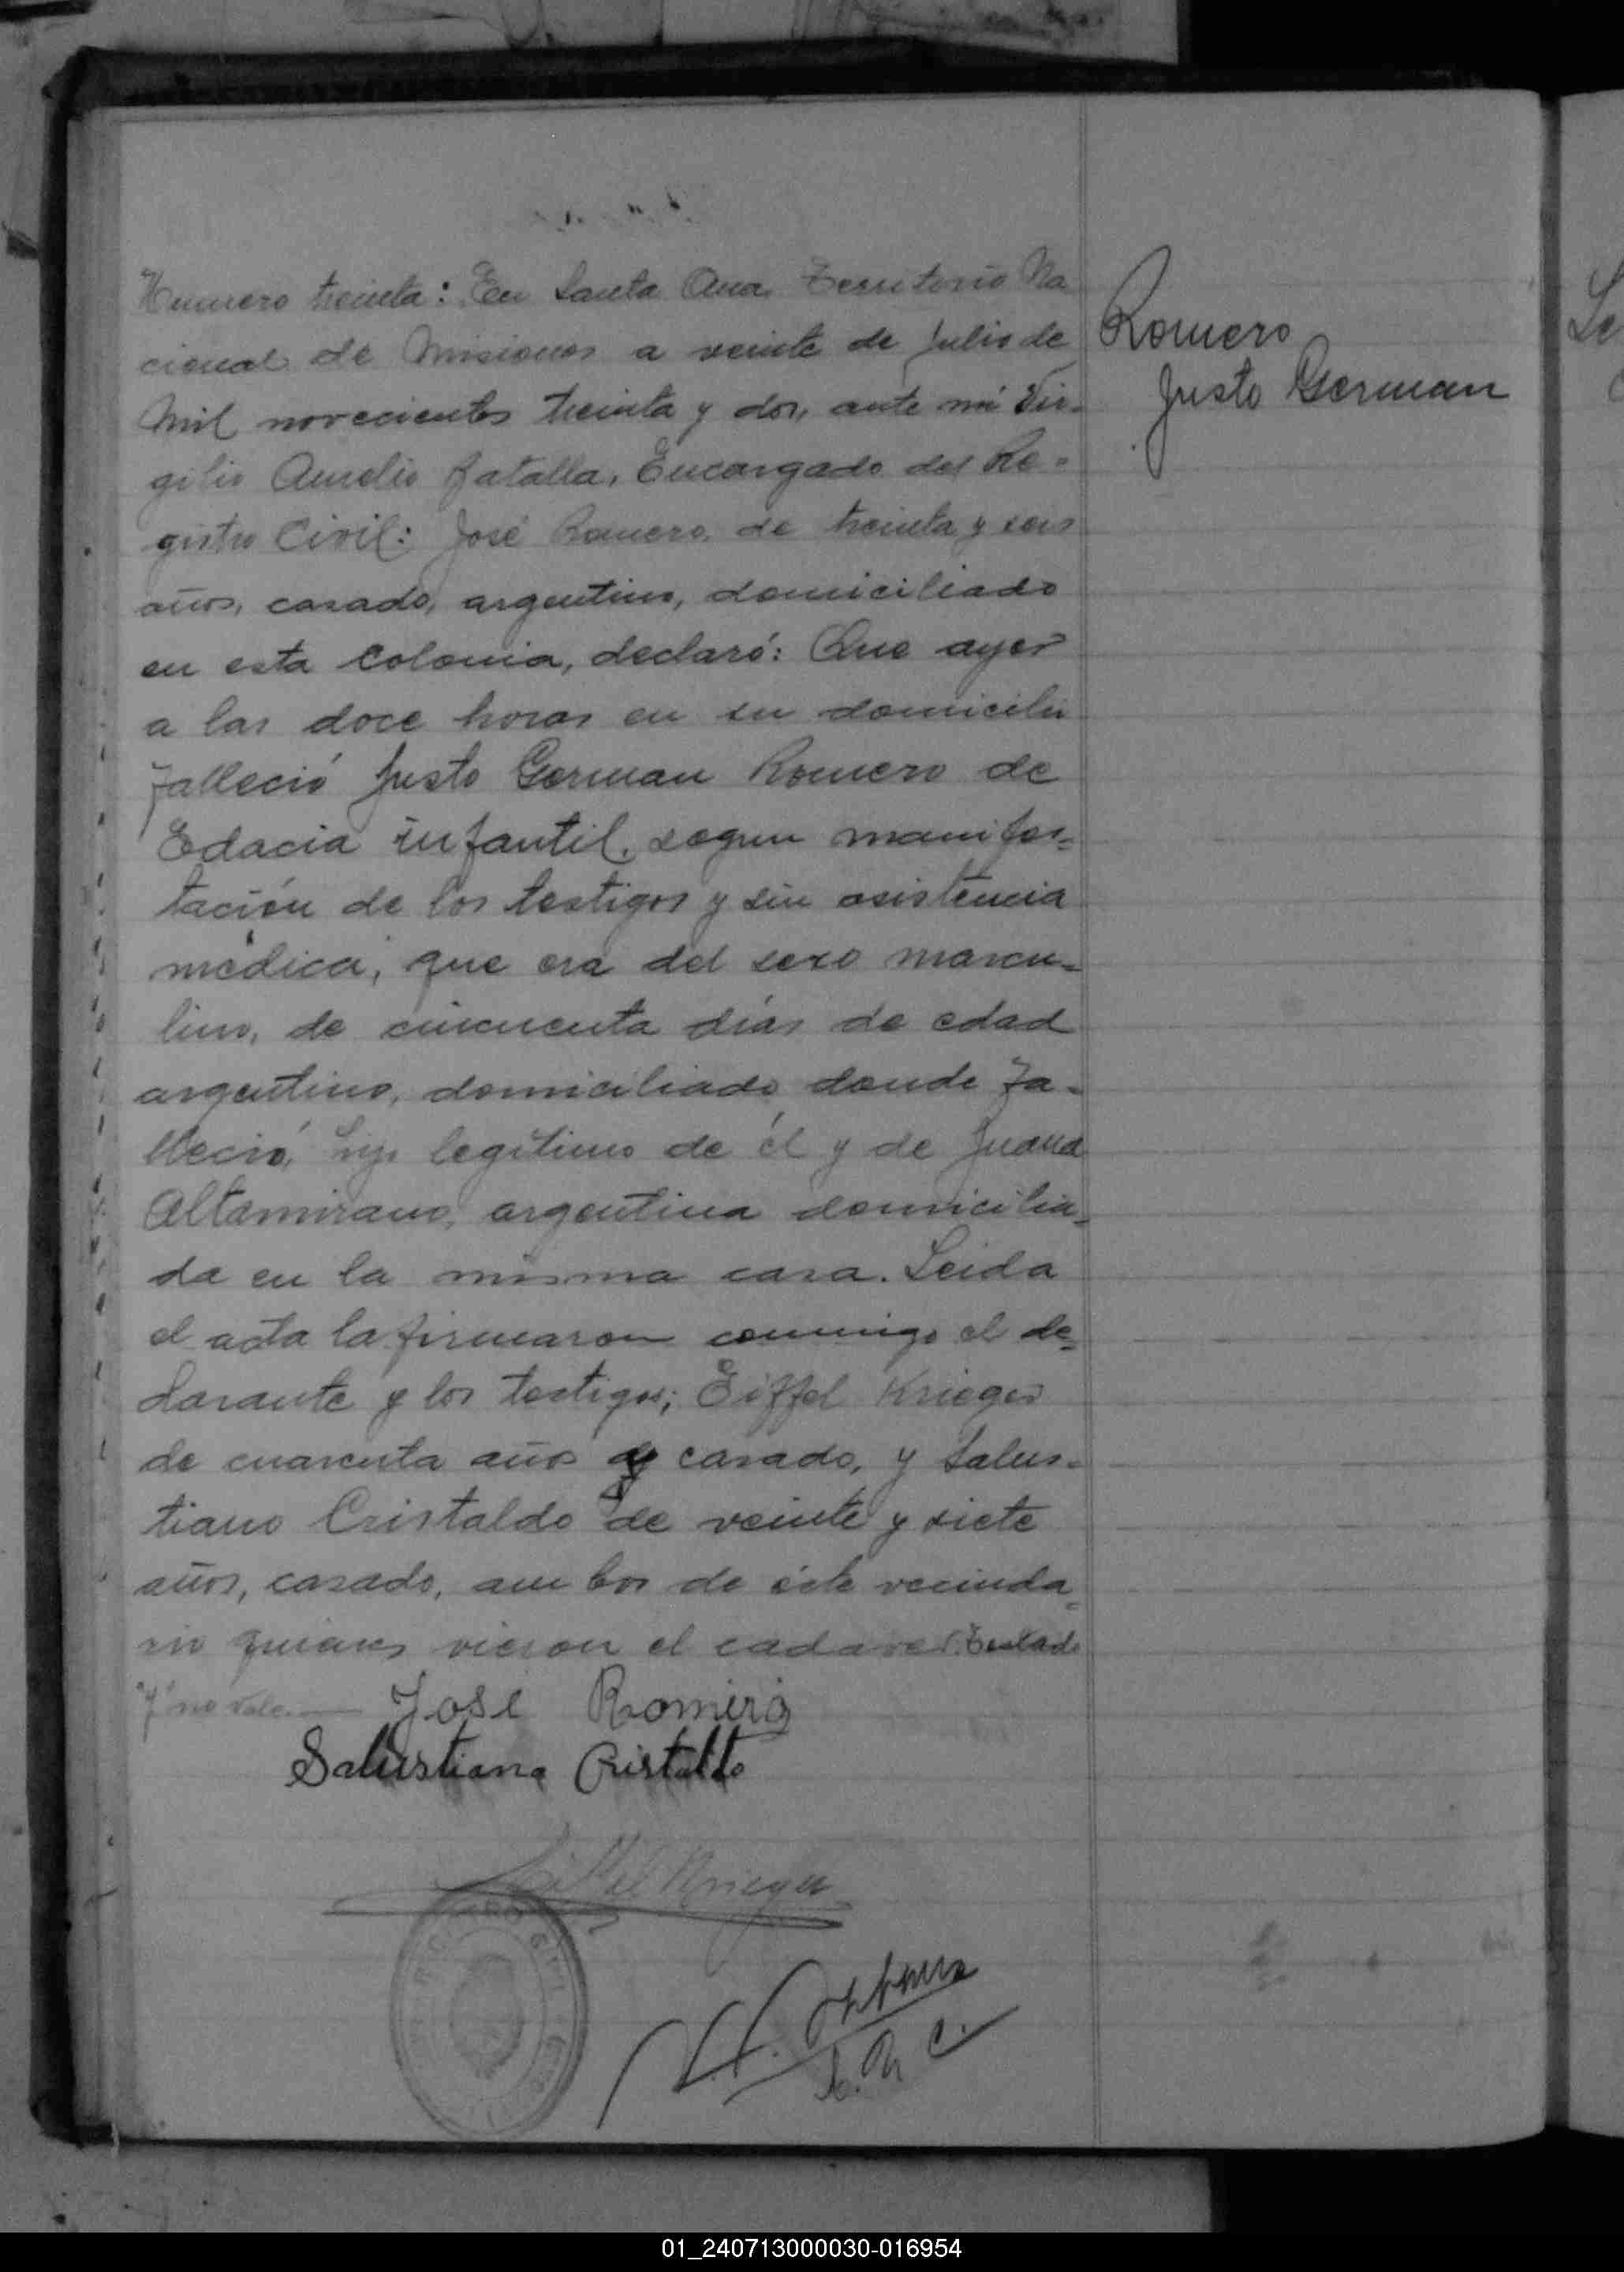 Numero treinta: En Santa Ana, Territorio Na
cional de Misiones a veinte de Julio de
Mil novecientos treinta y dos, ante mí Vir-
gilio Aurelio Batalla, Encargado del Re-
gistro Civil: José Romero, de treinta y seis
años, casado, argentino, domiciliado
en esta Colonia, declaró: Que ayer
a las doce horas en su domicilio
falleció Justo German Romero de
Edacia infantil, segun manifes-
tación de los testigos y sin asistencia
médica, que era del sexo mascu-
lino, de cincuenta días de edad
argentino, domiciliado donde fa-
lleció, hijo legítimo de él y de Juana
Altamirano, argentina domicilia-
da en la misma casa. Leida
el acta la firmaron conmigo el de-
clarante y los testigos; Eiffel Krieger
de cuarenta años y casado, y Salus-
tiano Cristaldo de veinte y siete
años, casado, ambos de éste vecinda-
rio quienes vieron el cadaver. Testado
"y" no vale.
José Romero
Salustiano Cristaldo
Eiffel Krieger
E. R. C.
Romero
Justo German
01_240713000030-016954